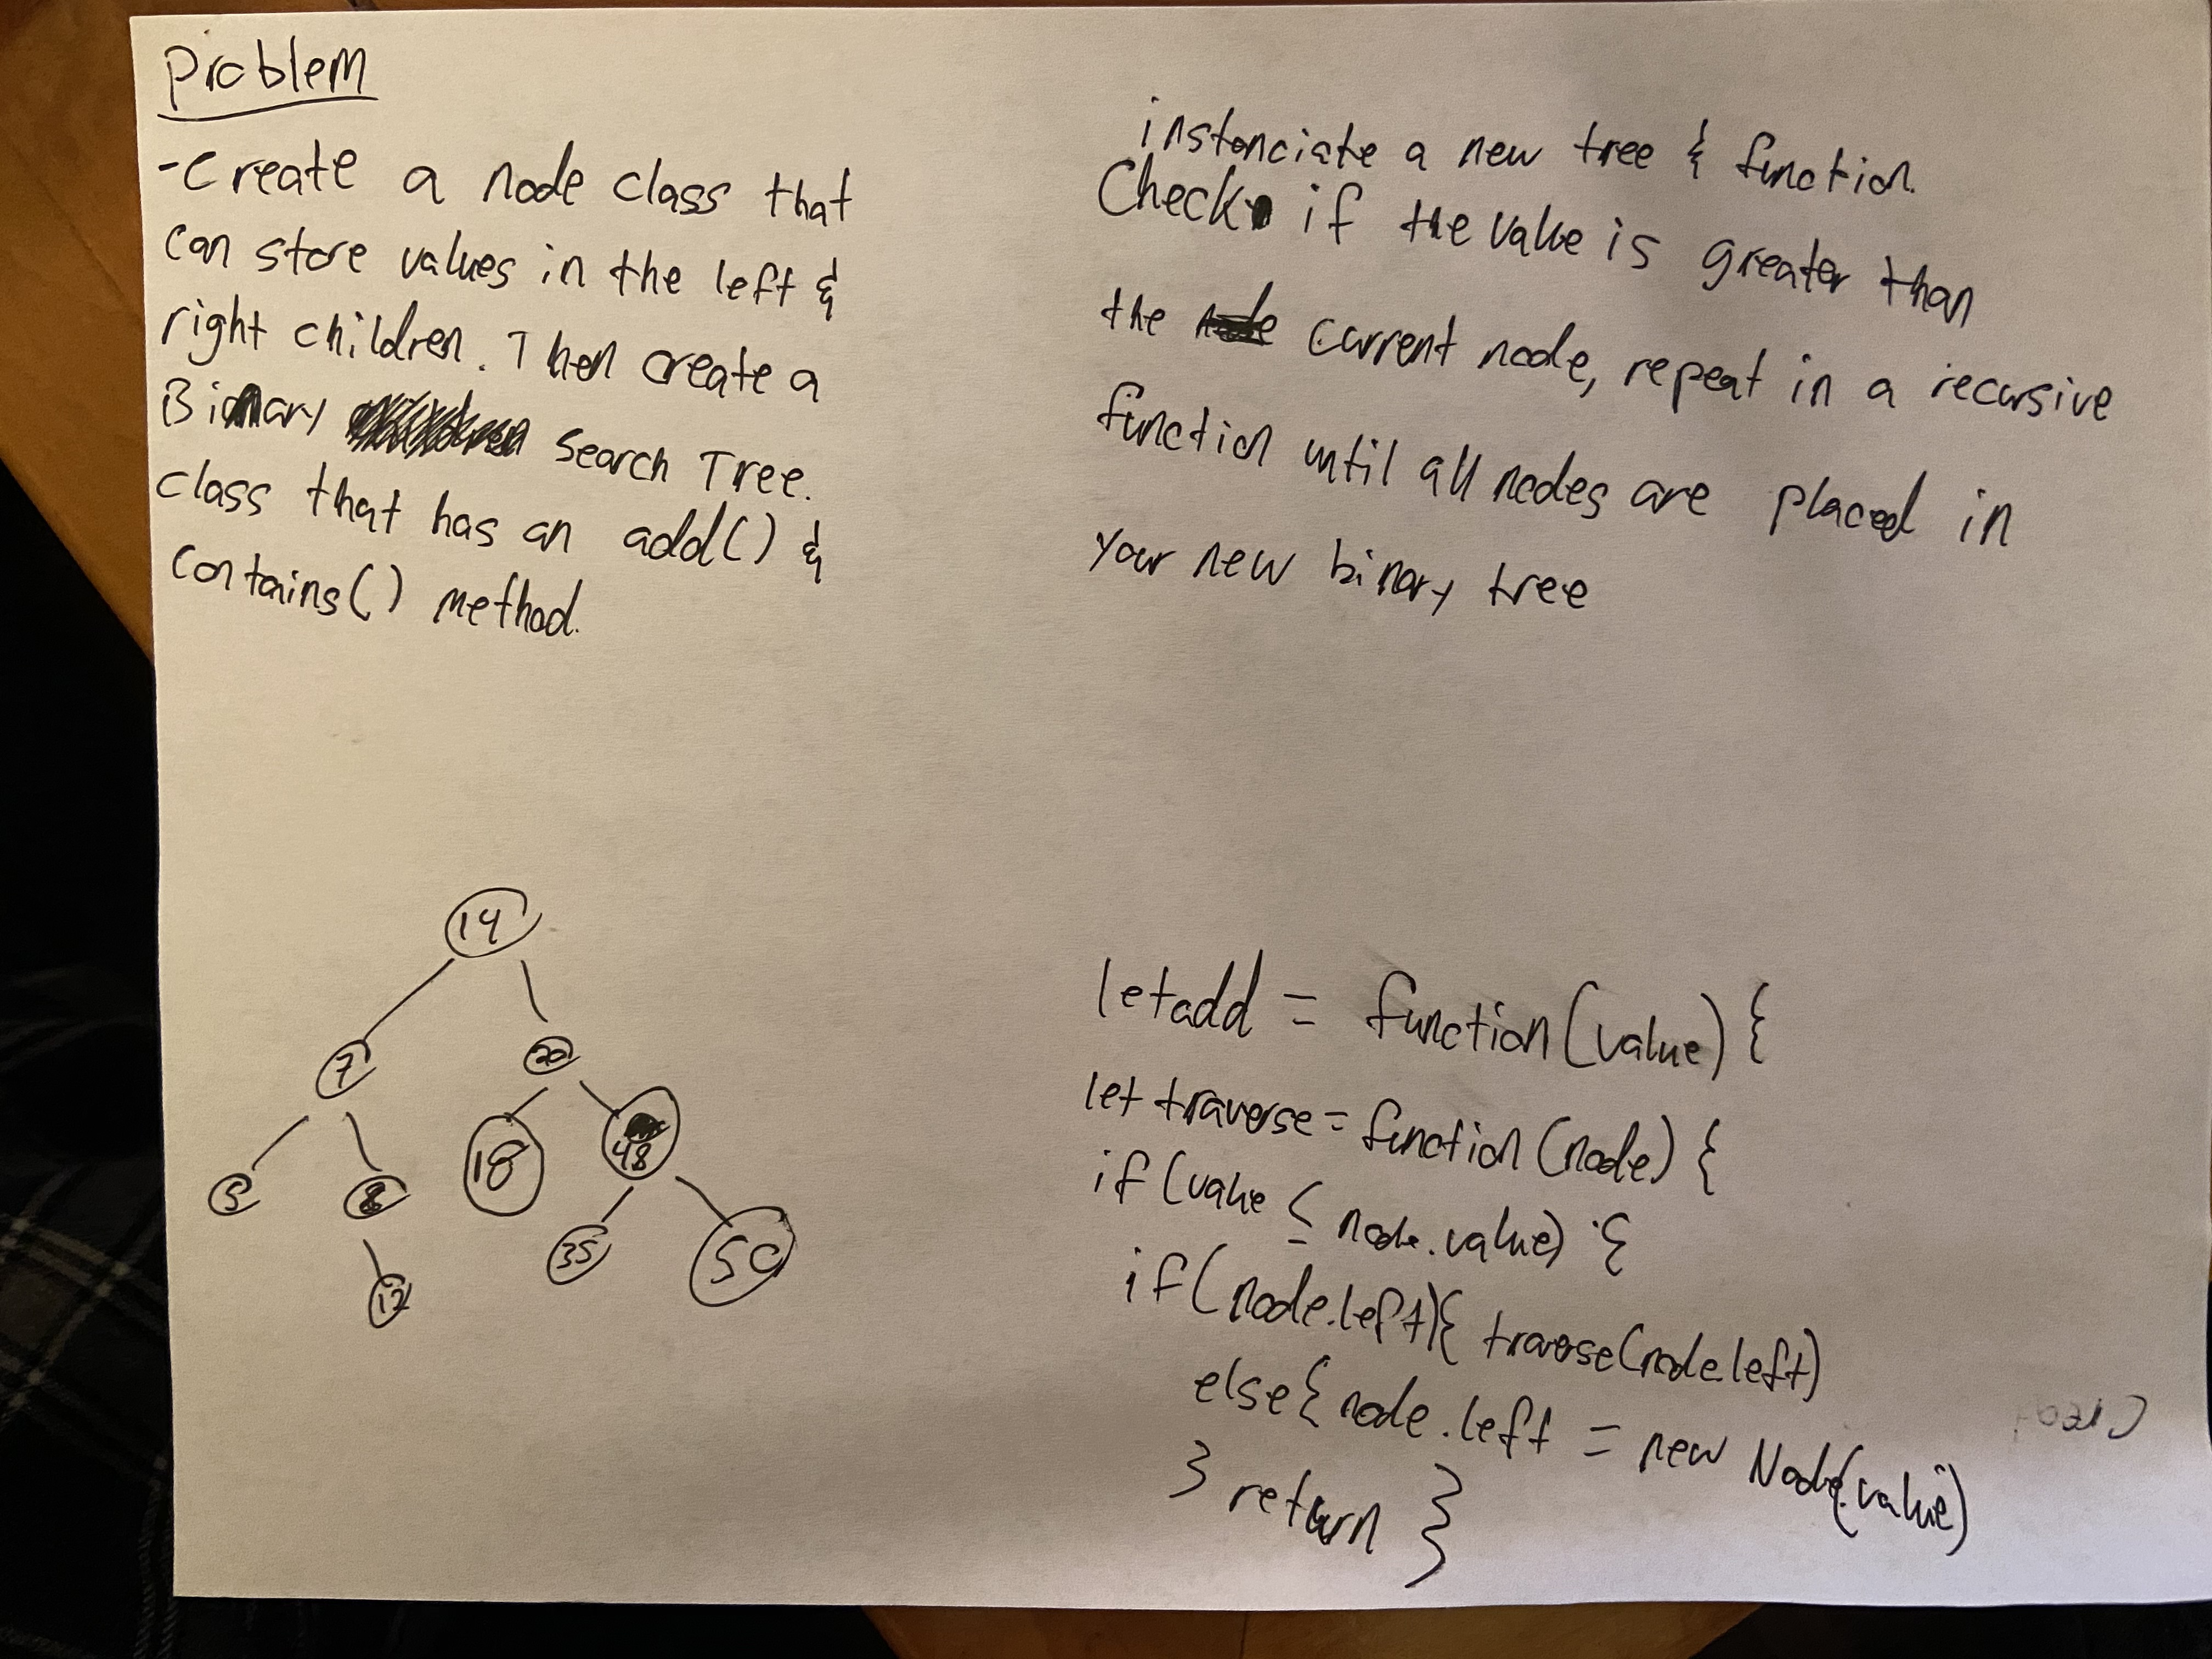 Problem
-Create a node class that
can store values in the left &
right children. Then create a
Binary search Tree.
class that has an add() &
contains() method.
instanciate a new tree & function
Check if the value is greater than
the current node, repeat in a recursive
function until all nodes are placed in
your new binary tree
14
7
20
5
8
18
48
12
35
50
let add = function(value) {
let traverse = function(node) {
if (value ≤ node.value) {
if(node.left){ traverse(node.left)
else { node.left = new Node(value)
} return }
}